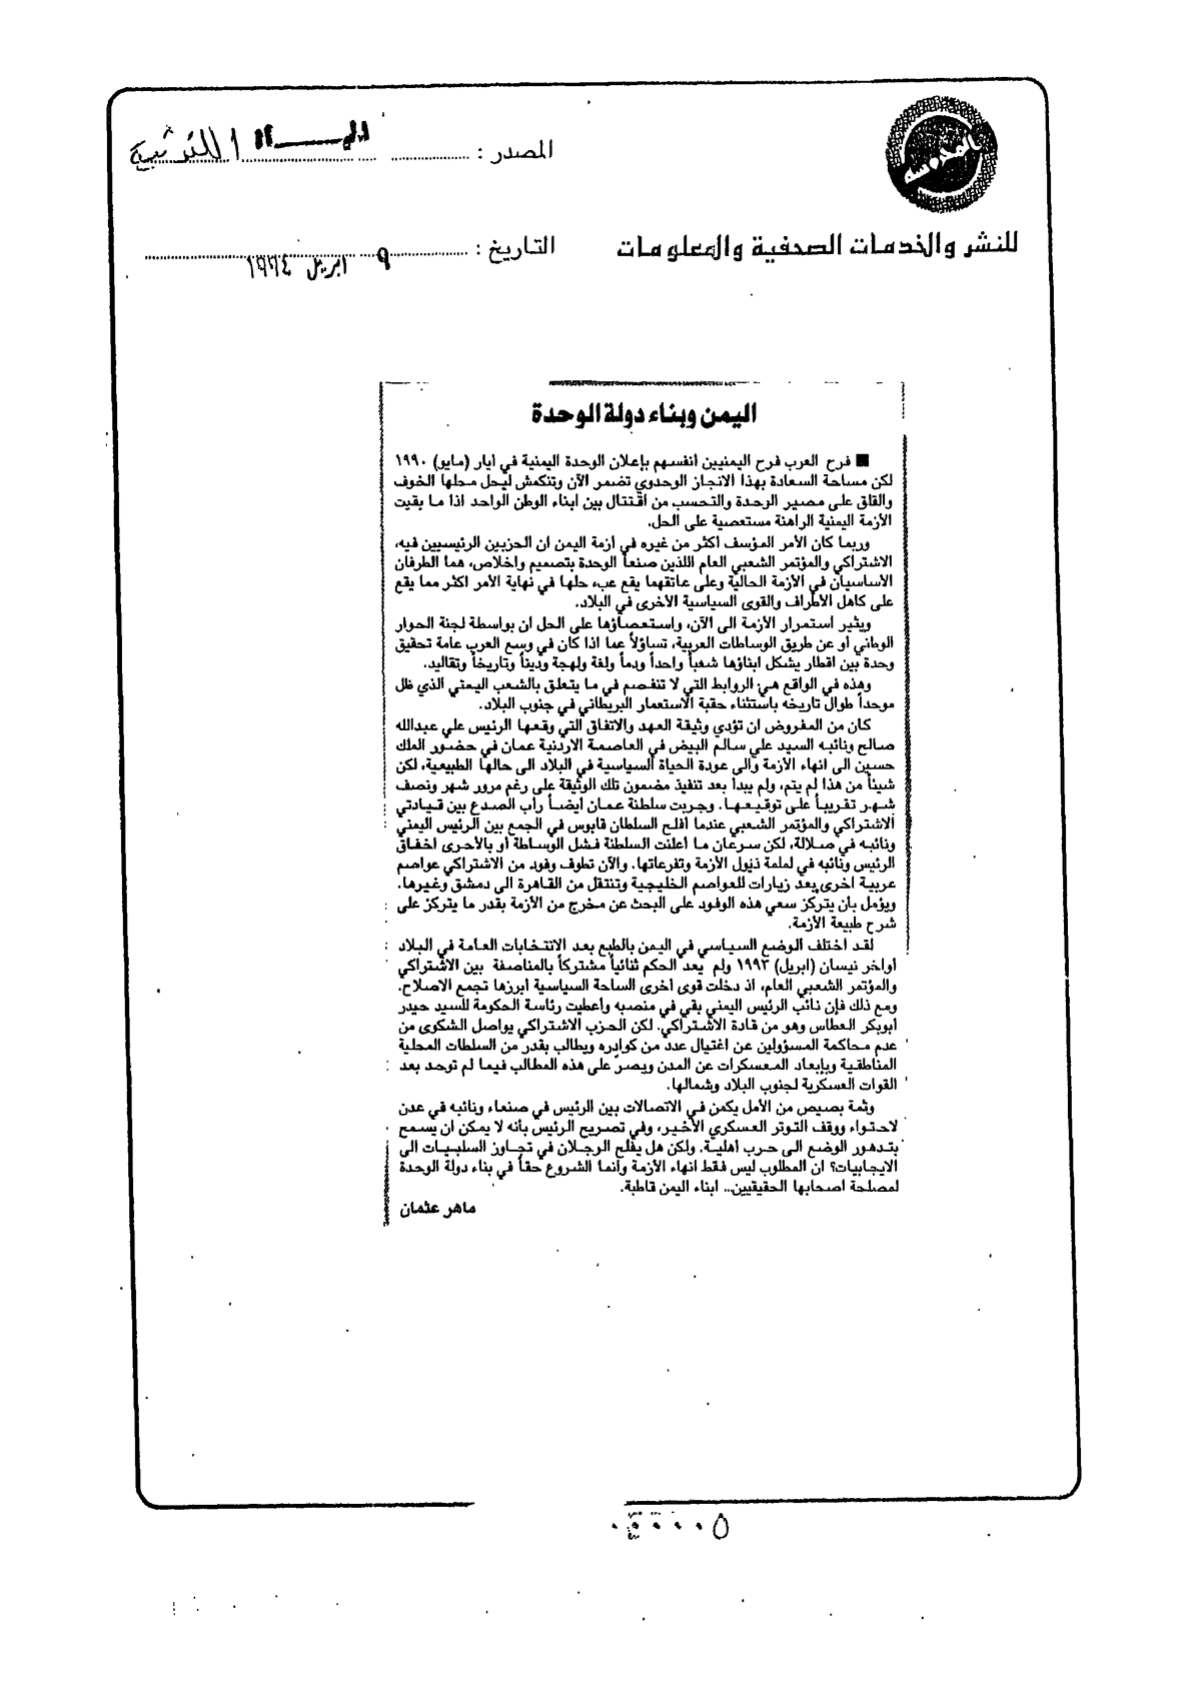 المصدر :
للنشر والخدمات الصحفية والمعلومات
التاريخ : ٩ ابريل ١٩٩٤
اليمن وبناء دولة الوحدة
■ فرح العرب فرح اليمنيين أنفسهم بإعلان الوحدة اليمنية في أيار (مايو) ١٩٩٠
لكن مساحة السعادة بهذا الانجاز الوحدوي تضمر الآن وتنكمش ليحل محلها الخوف
والقلق على مصير الوحدة والتحسب من اقتتال بين ابناء الوطن الواحد اذا ما بقيت
الأزمة اليمنية الراهنة مستعصية على الحل.
وربما كان الأمر المؤسف اكثر من غيره في ازمة اليمن ان الحزبين الرئيسيين فيه،
الاشتراكي والمؤتمر الشعبي العام اللذين صنعا الوحدة بتصميم واخلاص، هما الطرفان
الاساسيان في الأزمة الحالية وعلى عاتقهما يقع عبء حلها في نهاية الأمر اكثر مما يقع
على كاهل الأطراف والقوى السياسية الأخرى في البلاد.
ويثير استمرار الأزمة الى الآن، واستعصاؤها على الحل ان بواسطة لجنة الحوار
الوطني أو عن طريق الوساطات العربية، تساؤلاً عما اذا كان في وسع العرب عامة تحقيق
وحدة بين اقطار يشكل ابناؤها شعباً واحداً ودماً ولغة ولهجة وديناً وتاريخاً وتقاليد.
وهذه في الواقع هي الروابط التي لا تنفصم في ما يتعلق بالشعب اليمني الذي ظل
موحداً طوال تاريخه باستثناء حقبة الاستعمار البريطاني في جنوب البلاد.
كان من المفروض ان تؤدي وثيقة العهد والاتفاق التي وقعها الرئيس علي عبدالله
صالح ونائبه السيد علي سالم البيض في العاصمة الاردنية عمان في حضور الملك
حسين الى انهاء الأزمة والى عودة الحياة السياسية في البلاد الى حالها الطبيعية، لكن
شيئاً من هذا لم يتم، ولم يبدأ بعد تنفيذ مضمون تلك الوثيقة على رغم مرور شهر ونصف
شهر تقريباً على توقيعها. وجربت سلطنة عمان أيضاً رأب الصدع بين قيادتي
الاشتراكي والمؤتمر الشعبي عندما افلح السلطان قابوس في الجمع بين الرئيس اليمني
ونائبه في صلالة، لكن سرعان ما أعلنت السلطنة فشل الوساطة أو بالأحرى اخفاق
الرئيس ونائبه في لملمة ذيول الأزمة وتفرعاتها. والآن تطوف وفود من الاشتراكي عواصم
عربية اخرى بعد زيارات للعواصم الخليجية وتنتقل من القاهرة الى دمشق وغيرها.
ويؤمل بأن يتركز سعي هذه الوفود على البحث عن مخرج من الأزمة بقدر ما يتركز على
شرح طبيعة الأزمة.
لقد اختلف الوضع السياسي في اليمن بالطبع بعد الانتخابات العامة في البلاد
أواخر نيسان (ابريل) ١٩٩٣ ولم يعد الحكم ثنائياً مشتركاً بالمناصفة بين الاشتراكي
والمؤتمر الشعبي العام، اذ دخلت قوى اخرى الساحة السياسية ابرزها تجمع الاصلاح.
ومع ذلك فإن نائب الرئيس اليمني بقي في منصبه وأعطيت رئاسة الحكومة للسيد حيدر
أبوبكر العطاس وهو من قادة الاشتراكي. لكن الحزب الاشتراكي يواصل الشكوى من
عدم محاكمة المسؤولين عن اغتيال عدد من كوادره ويطالب بقدر من السلطات المحلية
المناطقية وبإبعاد المعسكرات عن المدن ويصر على هذه المطالب فيما لم توحد بعد
القوات العسكرية لجنوب البلاد وشمالها.
وثمة بصيص من الأمل يكمن في الاتصالات بين الرئيس في صنعاء ونائبه في عدن
لاحتواء ووقف التوتر العسكري الأخير، وفي تصريح الرئيس بأنه لا يمكن ان يسمح
بتدهور الوضع الى حرب أهلية. ولكن هل يفلح الرجلان في تجاوز السلبيات الى
الايجابيات؟ ان المطلوب ليس فقط انهاء الأزمة وانما الشروع حقاً في بناء دولة الوحدة
لمصلحة اصحابها الحقيقيين.. ابناء اليمن قاطبة.
ماهر عثمان